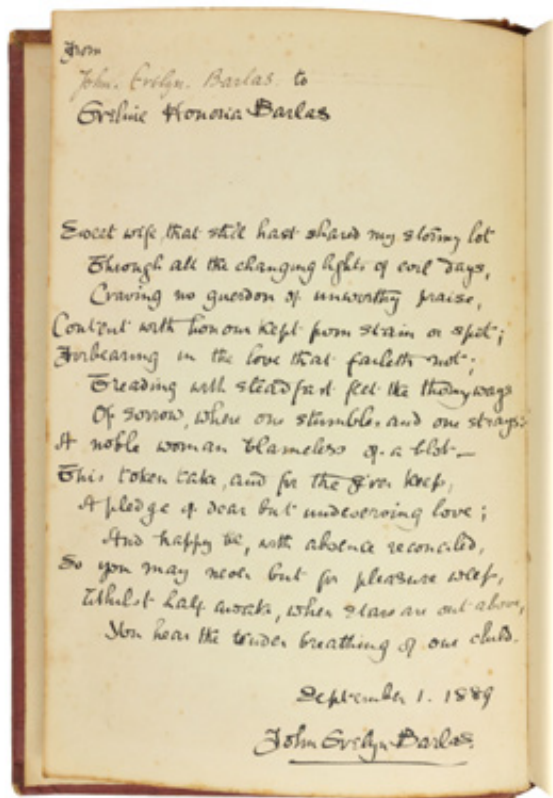 From
John. Evelyn. Barlas. to
Eveline Honoria Barlas
Sweet wife, that still hast shared my stormy lot
Through all the changing lights of evil days,
Craving no guerdon of unworthy praise,
Content with honour kept from stain or spot;
Forbearing in the love that faileth not;
Treading with steadfast feet the thorny ways
Of sorrow, where one stumbles and one strays:
A noble woman blameless of a blot—
This token take, and for the giver keep,
A pledge of dear but undeserving love;
And happy be, with absence reconciled,
So you may never but for pleasure weep,
Whilst half awake, when stars are out above,
You hear the tender breathing of our child.
September 1. 1889
John Evelyn Barlas.